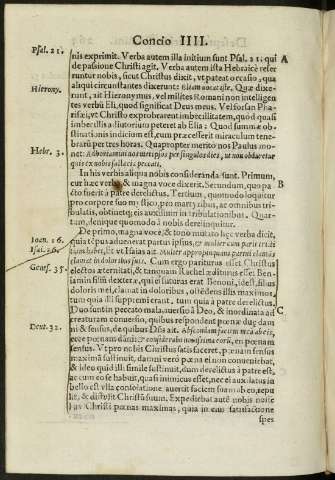 Concio IIII.
Psal. 21.
nis exprimit. Verba autem illa initium sunt Psal. 21; qui A
de passione Christi agit. Verba autem ista Hebraicè refer
runtur nobis, sicut Christus dixit, vt pateat occasio, qua
aliqui circunstantes dixerunt: Eliam vocat iste. Quæ dixe-
Hierony.
runt, ait Hieronymus, vel milites Romani non intelligen
tes verbũ Eli, quod significat Deus meus. Vel forsan Pha-
risæi, vt Christo exprobrarent imbecillitatem, quod quasi
imbecillis adiutorium peteret ab Elia: Quod summæ ob-
stinationis indicium est, cum præcessserit miraculum tene-
brarũ per tres horas. Quapropter merito nos Paulus mo-
Hebr. 3.
net: Adhortamini nosmetipsos per singulos dies, ut non obduretur
quis ex nobis fallacia peccati.
In his verbis aliqua nobis consideranda sunt. Primum,
cur hæc verba, & magna voce dixerit. Secundum, quo pa- B
cto fuerit à patre derelictus. Tertium, quomodo loquitur
pro corpore suo mystico, pro martyribus, ac omnibus tri-
bulatis, obtinetq; eis auxilium in tribulationibus. Quar-
tum, denique quomodo à nobis derelinquitur.
De primo, magna vocè, & tono mutato hęc verba dicit,
Ioan. 16.
quia tẽpus adueniebat partus ipsius, & mulier cum parit tristi
Isai. 26.
tiam habet, Et vt Isaias ait: Mulier appropinquans partui clamat
clamat in doloribus suis. Cum ergo pariturus esset Christus
Genes. 35.
electos æternitati, & tanquam Rachel æditurus esset Ben-
iamin filiũ dexteræ, qui sibi futurus erat Benoni, idest, filius
doloris mei, clamat in doloribus, ostẽdens illis maximos,
tum quia illi suppremi erant, tum quia à patre derelictus.
Duo sunt in peccato mala, auersio à Deo, & inordinata ad C
creaturam conuersio, quibus respondent pœnæ dug dam
Deut. 32.
ni & sensus, de quibus Dñs ait. Abscondam faciem meã ab eis,
ecce pœnam damni: & considerabo nouissima eorũ, en pœnam
sensus. Vt pro nobis Christus satis faceret, pœnam sensus
maximã sustinuit, damni verò pœna ei non conueniebat,
& ideo quid illi simile sustinuit, dum derelictus à patre est,
ac cum eo se habuit, quasi inimicus esset, nec ei auxilatus in
bello est vlla consolatione. auertit faciem suam ab eo, repu-
lit, & distulit Christũ suum. Expediebat autẽ nobis nosse
has Christi pœnas maximas, quia in eius satisfactione
spes